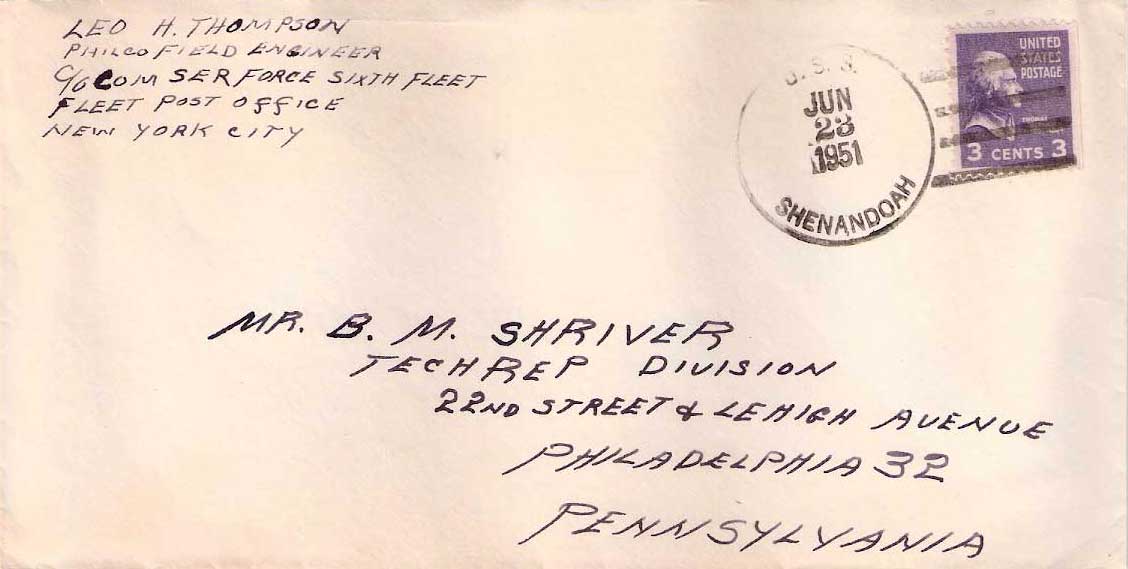 LEO H. THOMPSON
PHILCO FIELD ENGINEER
C/O COM SER FORCE SIXTH FLEET
FLEET POST OFFICE
NEW YORK CITY
U. S. S.
JUN
23
1951
SHENANDOAH
UNITED
STATES
POSTAGE
THOMAS
3 CENTS 3
MR. B. M. SHRIVER
TECHREP DIVISION
22ND STREET & LEHIGH AVENUE
PHILADELPHIA 32
PENNSYLVANIA